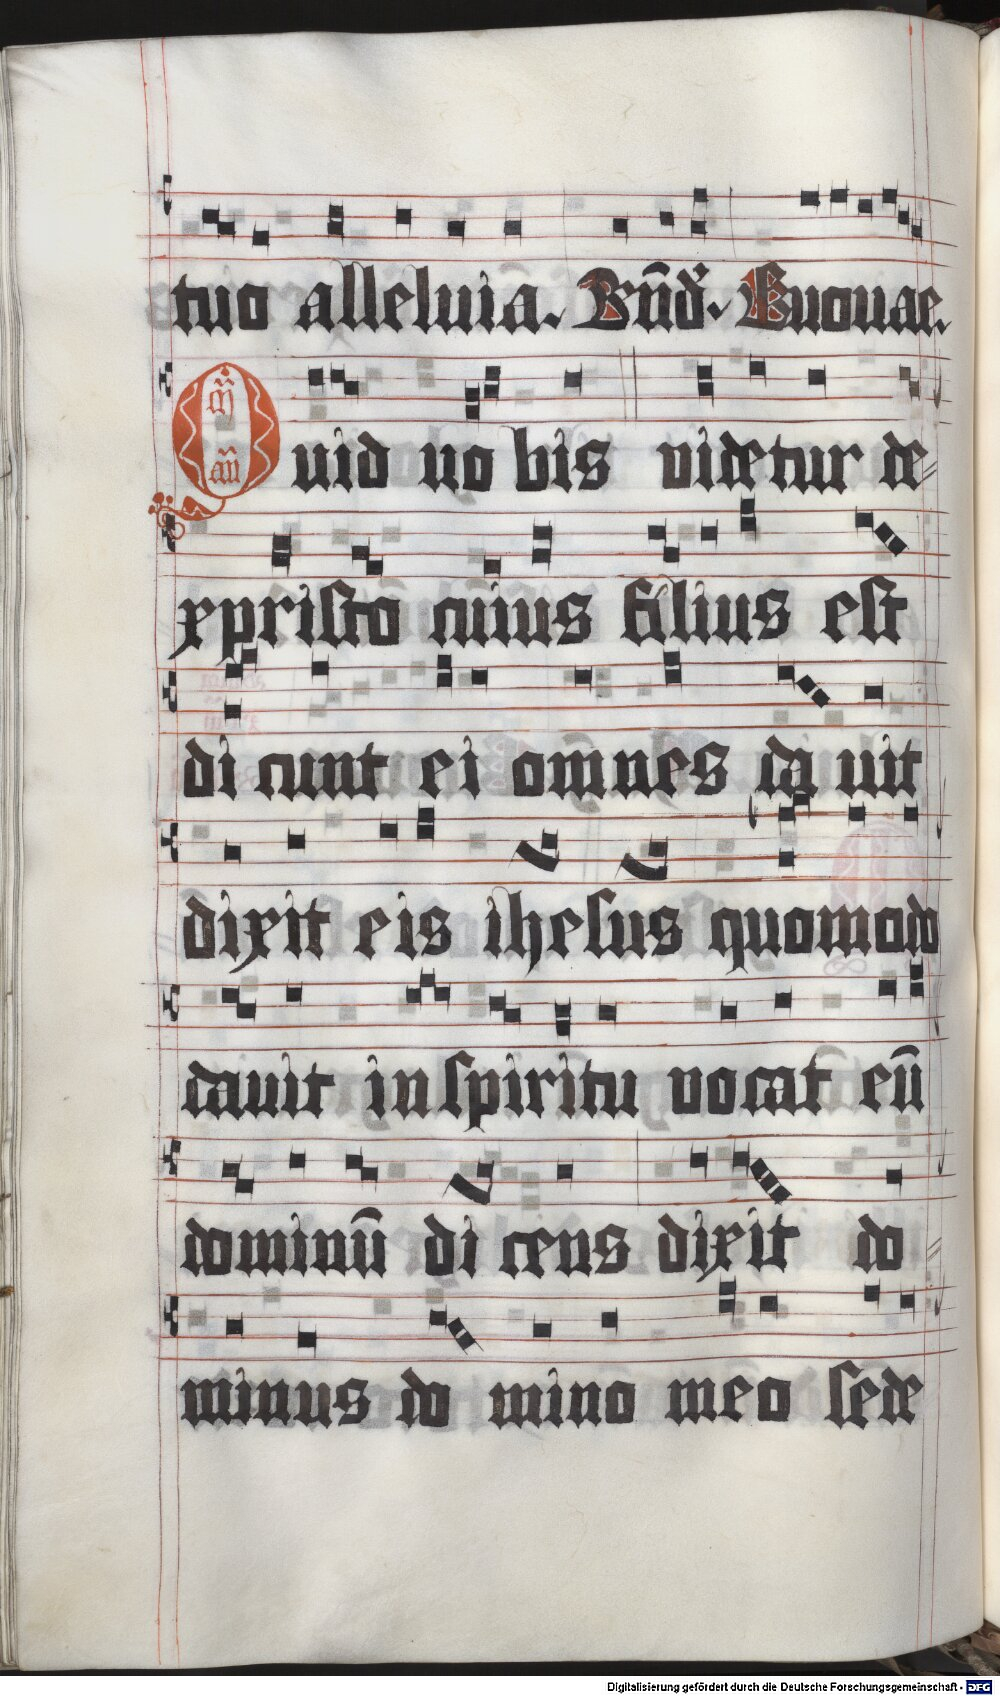 tuo alleluia. Bn̄d̄. Euouae.
Quid uo bis videtur de
xpristo cuius filius est
di cunt ei om̄nes da uit
dixit eis ihesus quomodo
dauit in spiritu vocat eū
dominū di cens dixit do
minus do mino meo sede
Digitalisierung gefördert durch die Deutsche Forschungsgemeinschaft - DFG